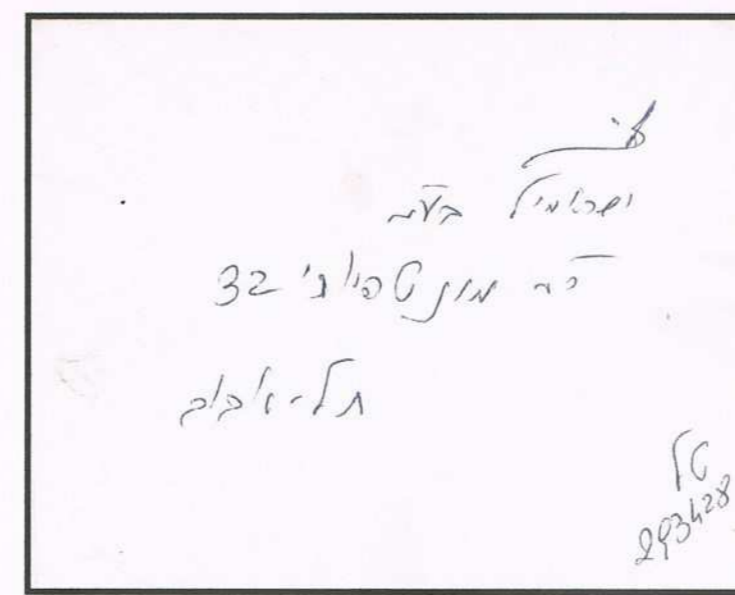 ישראמיל בע"מ
רח' מונטפיורי 32
תל-אביב
טל
293428